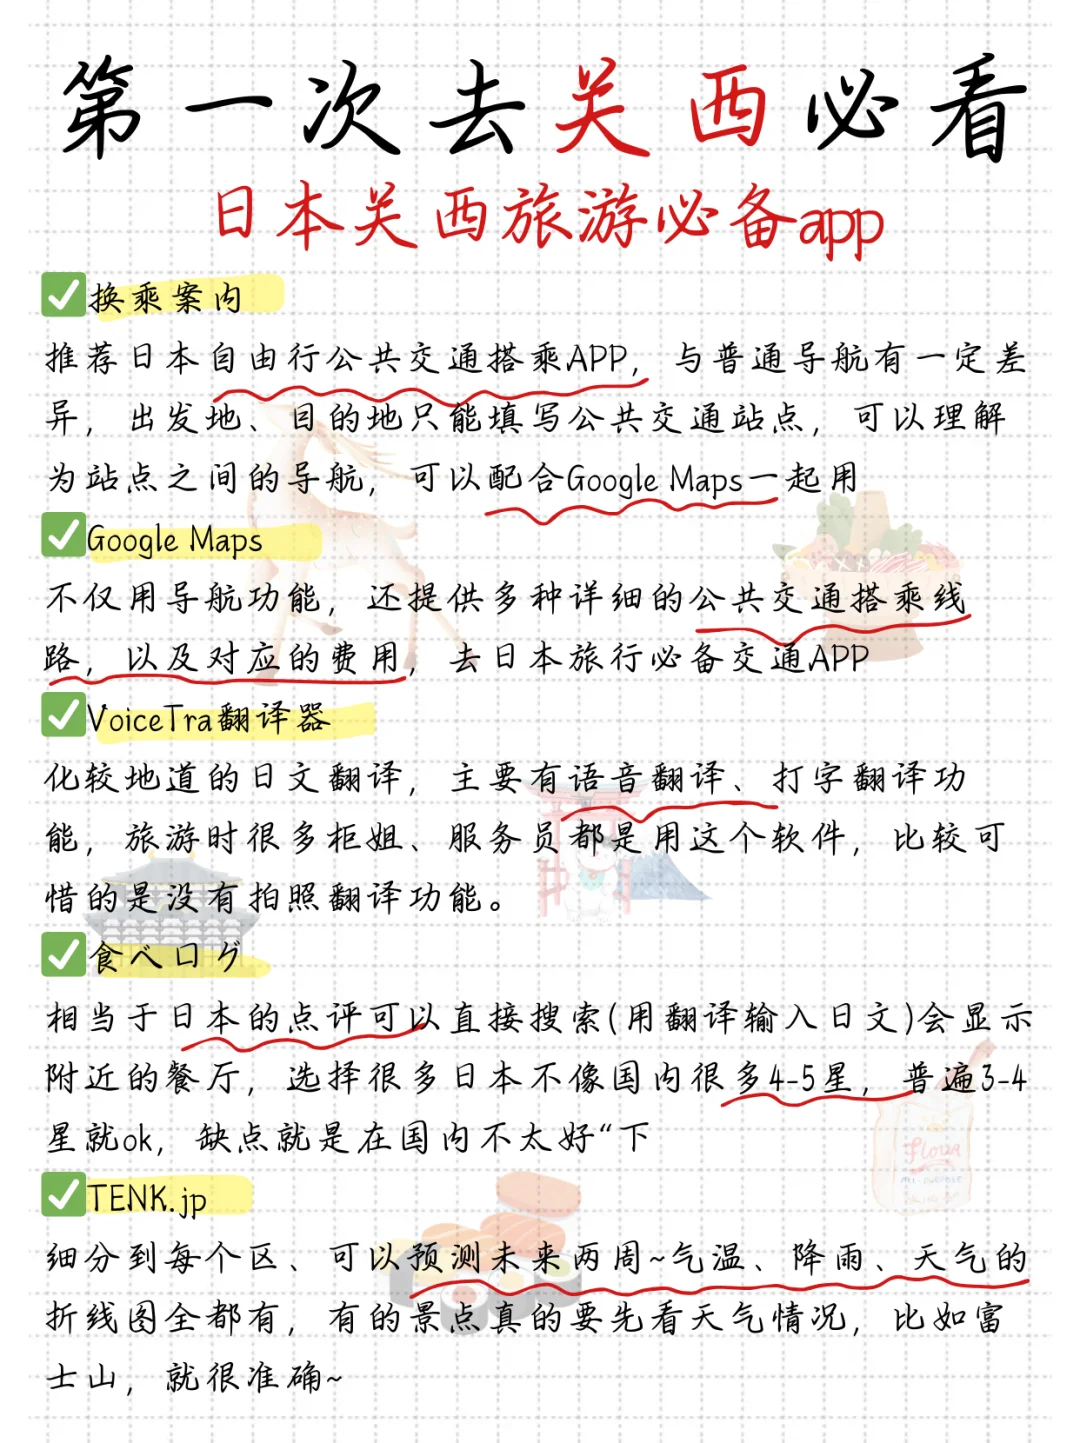 第一次去关西必看
日本关西旅游必备app
✅换乘案内
推荐日本自由行公共交通搭乘APP，与普通导航有一定差
异，出发地、目的地只能填写公共交通站点，可以理解
为站点之间的导航，可以配合Google Maps一起用
✅Google Maps
不仅用导航功能，还提供多种详细的公共交通搭乘线
路，以及对应的费用，去日本旅行必备交通APP
✅VoiceTra翻译器
化较地道的日文翻译，主要有语音翻译、打字翻译功
能，旅游时很多柜姐、服务员都是用这个软件，比较可
惜的是没有拍照翻译功能。
✅食べログ
相当于日本的点评可以直接搜索(用翻译输入日文)会显示
附近的餐厅，选择很多日本不像国内很多4-5星，普遍3-4
星就ok，缺点就是在国内不太好“下
✅TENK.jp
细分到每个区、可以预测未来两周~气温、降雨、天气的
折线图全都有，有的景点真的要先看天气情况，比如富
士山，就很准确~
flour